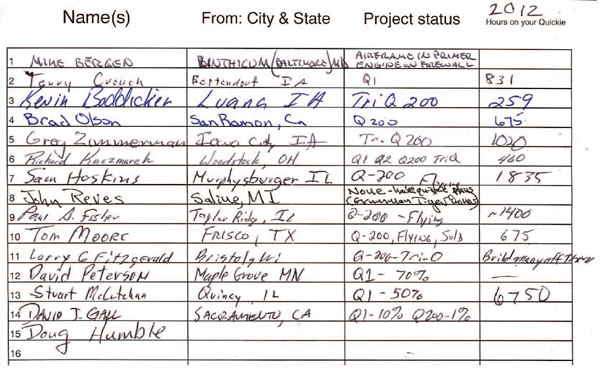 Name(s) From: City & State Project status 2012 Hours on your Quickie
1 MIKE BERGEN BINTHICUM (BALTIMORE) MD AIRFRAME IN PRIMER ENGINE ON FIREWALL
2 Terry Crouch Bettendorf IA Q1 831
3 Kevin Boddicker Luana IA Tri Q 200 259
4 Brad Olson San Ramon, Ca Q200 675
5 Greg Zimmerman Iowa City, IA Tri Q200 1020
6 Richard Kaczmarek Woodstock, OH Q1 Q2 Q200 TriQ 460
7 Sam Hoskins Murphysburger IL Q-200 Flying 1835
8 John Reves Saline, MI None (Grumman Tiger
9 Paul A. Fisher Taylor Ridge, IL Q-200 - Flying ~1400
10 TOM MOORE FRISCO, TX Q-200, FLYING, Sold 675
11 Larry C Fitzgerald Bristol, Wi Q-200-Tri-Q Build many off
12 David Peterson Maple Grove MN Q1- 70% —
13 Stuart McCutchan Quincy, IL Q1 - 50% 6750
14 DAVID J. GALL SACRAMENTO, CA Q1-10% Q200-1%
15 Doug Humble
16